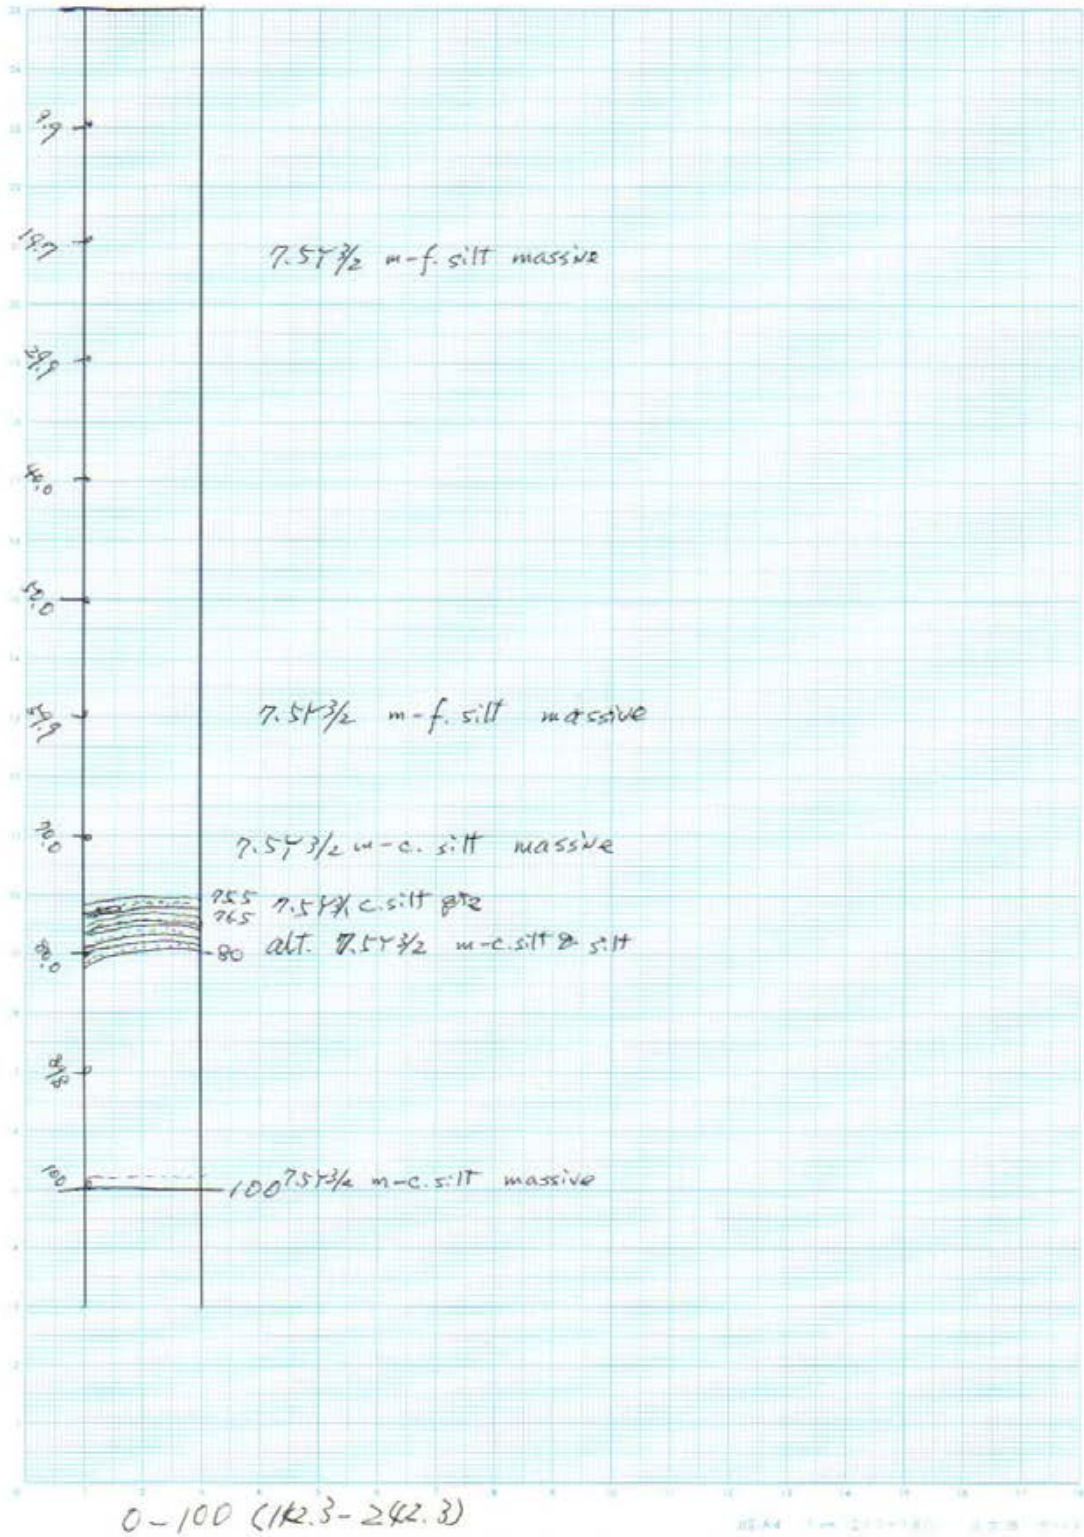 9.9
19.7
7.5Y 3/2 m-f. silt massive
29.9
40.0
50.0
7.5Y 3/2 m-f. silt massive
59.9
70.0
7.5Y 3/2 m-c. silt massive
75.5 7.5Y c. silt
76.5
80.0
80 alt. 7.5Y 3/2 m-c. silt & silt
89.8
100
100 7.5Y 3/2 m-c. silt massive
0-100 (142.3-242.3)